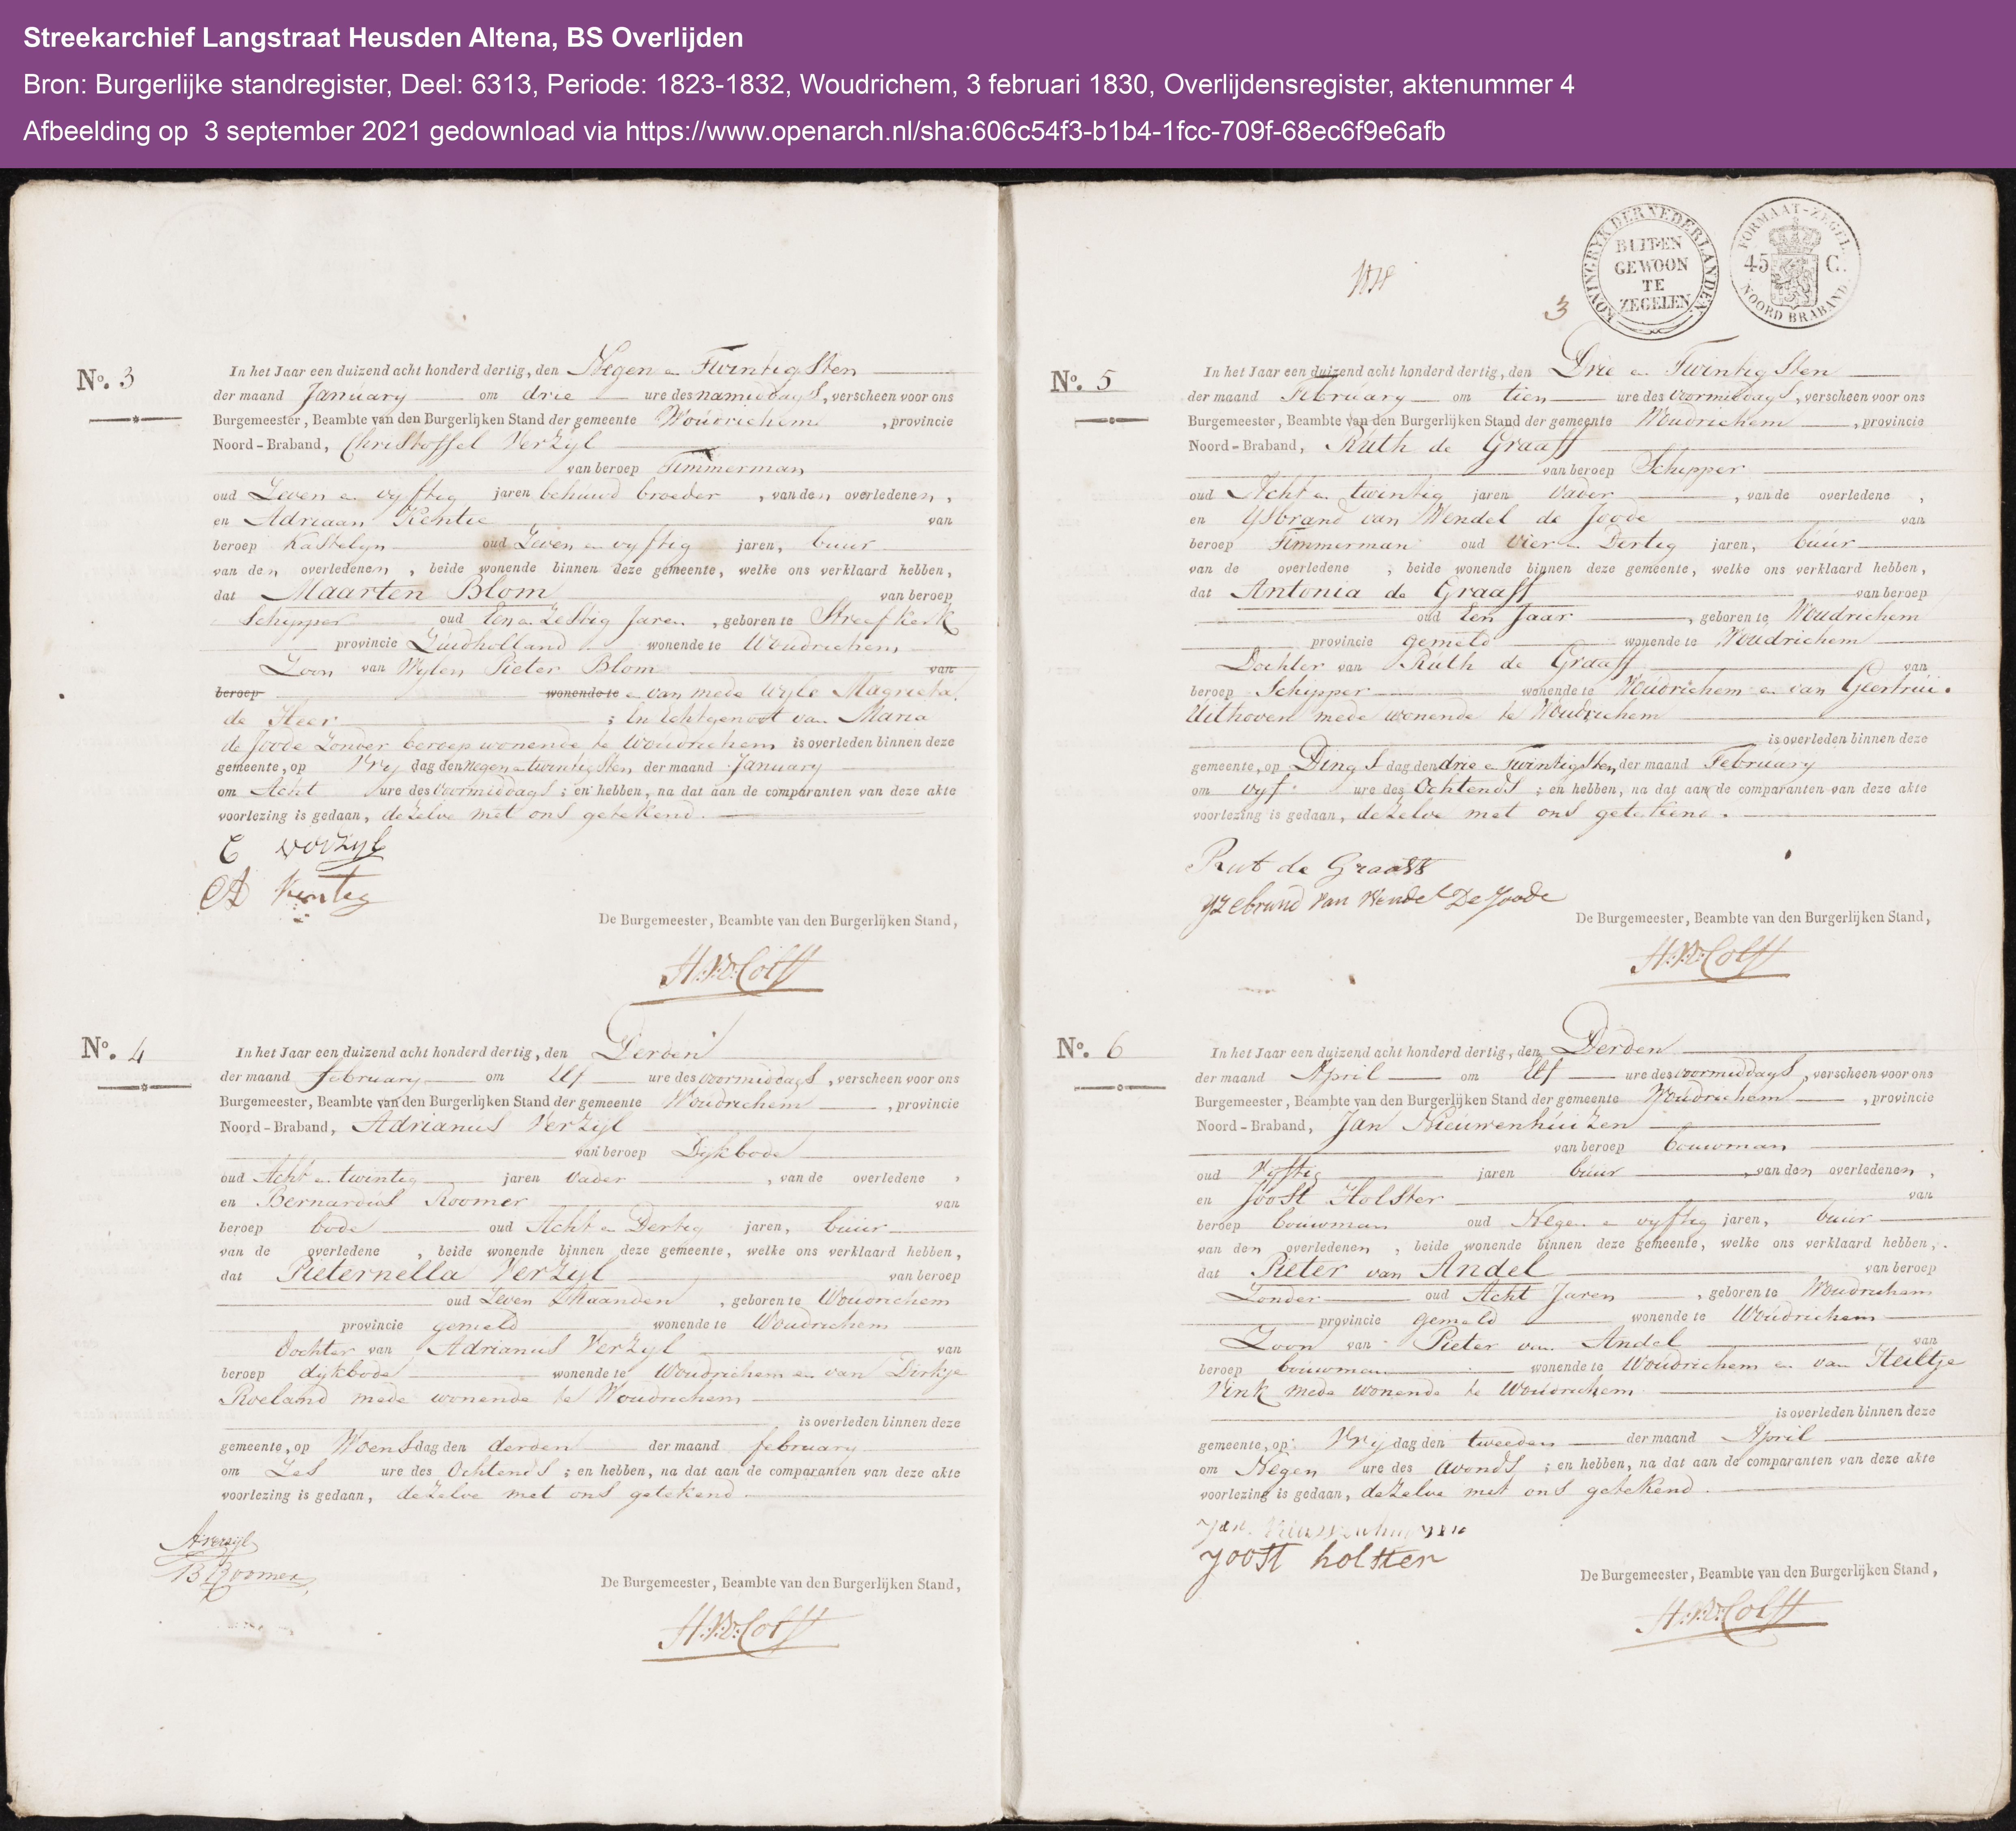 Streekarchief Langstraat Heusden Altena, BS Overlijden
Bron: Burgerlijke standregister, Deel: 6313, Periode: 1823-1832, Woudrichem, 3 februari 1830, Overlijdensregister, aktenummer 4
Afbeelding op 3 september 2021 gedownload via https://www.openarch.nl/sha:606c54f3-b1b4-1fcc-709f-68ec6f9e6afb
No. 3
In het Jaar een duizend acht honderd dertig, den Negen en Twintigsten
der maand January om drie ure des namiddags, verscheen voor ons
Burgemeester, Beambte van den Burgerlijken Stand der gemeente Woudrichem, provincie
Noord-Braband, Christoffel Verzyl
van beroep Timmerman
oud Zeven en vyftig jaren behuwd broeder, van den overledenen,
en Adriaan Kentie van
beroep Kastelyn oud Zeven en vyftig jaren, buur
van den overledenen, beide wonende binnen deze gemeente, welke ons verklaard hebben,
dat Maarten Blom van beroep
Schipper oud Een en Zestig Jaren, geboren te Streefkerk
provincie Zuidholland wonende te Woudrichem
Zoon van Wylen Pieter Blom van
beroep wonende te en van mede wyle Magrieta
de Heer; En Echtgenoot van Maria
de Joode Zonder beroep wonende te Woudrichem is overleden binnen deze
gemeente, op Vrydag den negen en twintigsten der maand January
om Acht ure des voormiddags; en hebben, na dat aan de comparanten van deze akte
voorlezing is gedaan, dezelve met ons getekend.
C verzyl
A Kentie
De Burgemeester, Beambte van den Burgerlijken Stand,
No. 4
In het Jaar een duizend acht honderd dertig, den Derden
der maand february om Elf ure des voormiddags, verscheen voor ons
Burgemeester, Beambte van den Burgerlijken Stand der gemeente Woudrichem, provincie
Noord-Braband, Adrianus Verzyl
van beroep Dykbode
oud Acht en twintig jaren vader, van de overledene,
en Bernardus Roomer van
beroep bode oud Acht en Dertig jaren, buur
van de overledene, beide wonende binnen deze gemeente, welke ons verklaard hebben,
dat Pieternella Verzyl van beroep
oud Zeven Maanden, geboren te Woudrichem
provincie gemeld wonende te Woudrichem
Dochter van Adrianus Verzyl van
beroep dijkbode wonende te Woudrichem en van Dirkje
Roeland mede wonende te Woudrichem
is overleden binnen deze
gemeente, op Woensdag den derden der maand february
om Zes ure des Ochtends; en hebben, na dat aan de comparanten van deze akte
voorlezing is gedaan, dezelve met ons getekend.
A verzijl
B Roomer
De Burgemeester, Beambte van den Burgerlijken Stand,
3
KONINGRYK DER NEDERLANDEN
BUITEN
GEWOON
TE
ZEGELEN
FORMAAT-ZEGEL
45 C.
NOORD BRABAND
No. 5
In het Jaar een duizend acht honderd dertig, den Drie en Twintigsten
der maand February om tien ure des voormiddags, verscheen voor ons
Burgemeester, Beambte van den Burgerlijken Stand der gemeente Woudrichem, provincie
Noord-Braband, Ruth de Graaff
van beroep Schipper
oud Acht en twintig jaren vader, van de overledene,
en Ysbrand van Wendel de Joode van
beroep Timmerman oud vier en Dertig jaren, buur
van de overledene, beide wonende binnen deze gemeente, welke ons verklaard hebben,
dat Antonia de Graaff van beroep
oud Een Jaar, geboren te Woudrichem
provincie gemeld wonende te Woudrichem
Dochter van Ruth de Graaff van
beroep Schipper wonende te Woudrichem en van Geertrui
Uithoven mede wonende te Woudrichem
is overleden binnen deze
gemeente, op Dingsdag den drie en Twintigsten der maand February
om vyf ure des Ochtends; en hebben, na dat aan de comparanten van deze akte
voorlezing is gedaan, dezelve met ons getekend.
Rut de Graaff
yzebrand van Wendel De Joode
De Burgemeester, Beambte van den Burgerlijken Stand,
No. 6
In het Jaar een duizend acht honderd dertig, den Derden
der maand April om Elf ure des voormiddags, verscheen voor ons
Burgemeester, Beambte van den Burgerlijken Stand der gemeente Woudrichem, provincie
Noord-Braband, Jan Nieuwenhuizen
van beroep bouwman
oud Vyftig jaren buur, van den overledenen,
en Joost Holster van
beroep bouwman oud Negen en vyftig jaren, buur
van den overledenen, beide wonende binnen deze gemeente, welke ons verklaard hebben,
dat Pieter van Andel van beroep
Zonder oud Acht Jaren, geboren te Woudrichem
provincie gemeld wonende te Woudrichem
Zoon van Pieter van Andel van
beroep bouwman wonende te Woudrichem en van Heiltje
Vink mede wonende te Woudrichem
is overleden binnen deze
gemeente, op Vrijdag den tweeden der maand April
om Negen ure des avonds; en hebben, na dat aan de comparanten van deze akte
voorlezing is gedaan, dezelve met ons getekend.
Jan
Joost holster
De Burgemeester, Beambte van den Burgerlijken Stand,